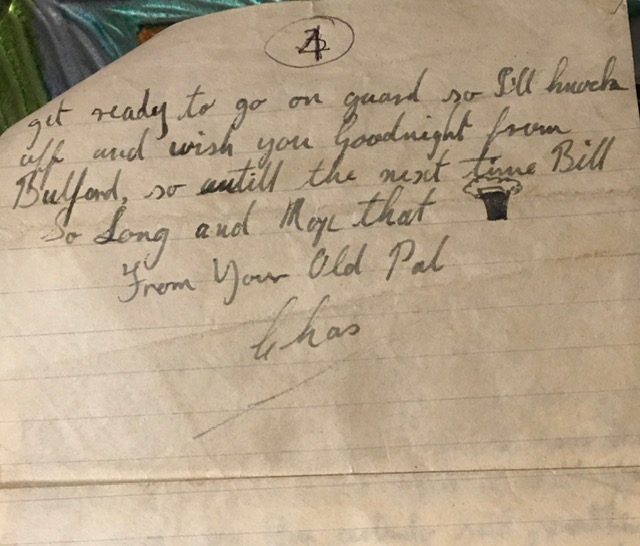 4
get ready to go on guard so I'll knock
off and wish you Goodnight from
Bulford, so untill the next time Bill
So Long and Mop that
From Your Old Pal
Chas